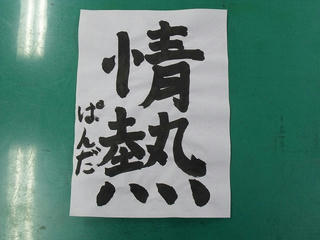 情熱
ぱんだ